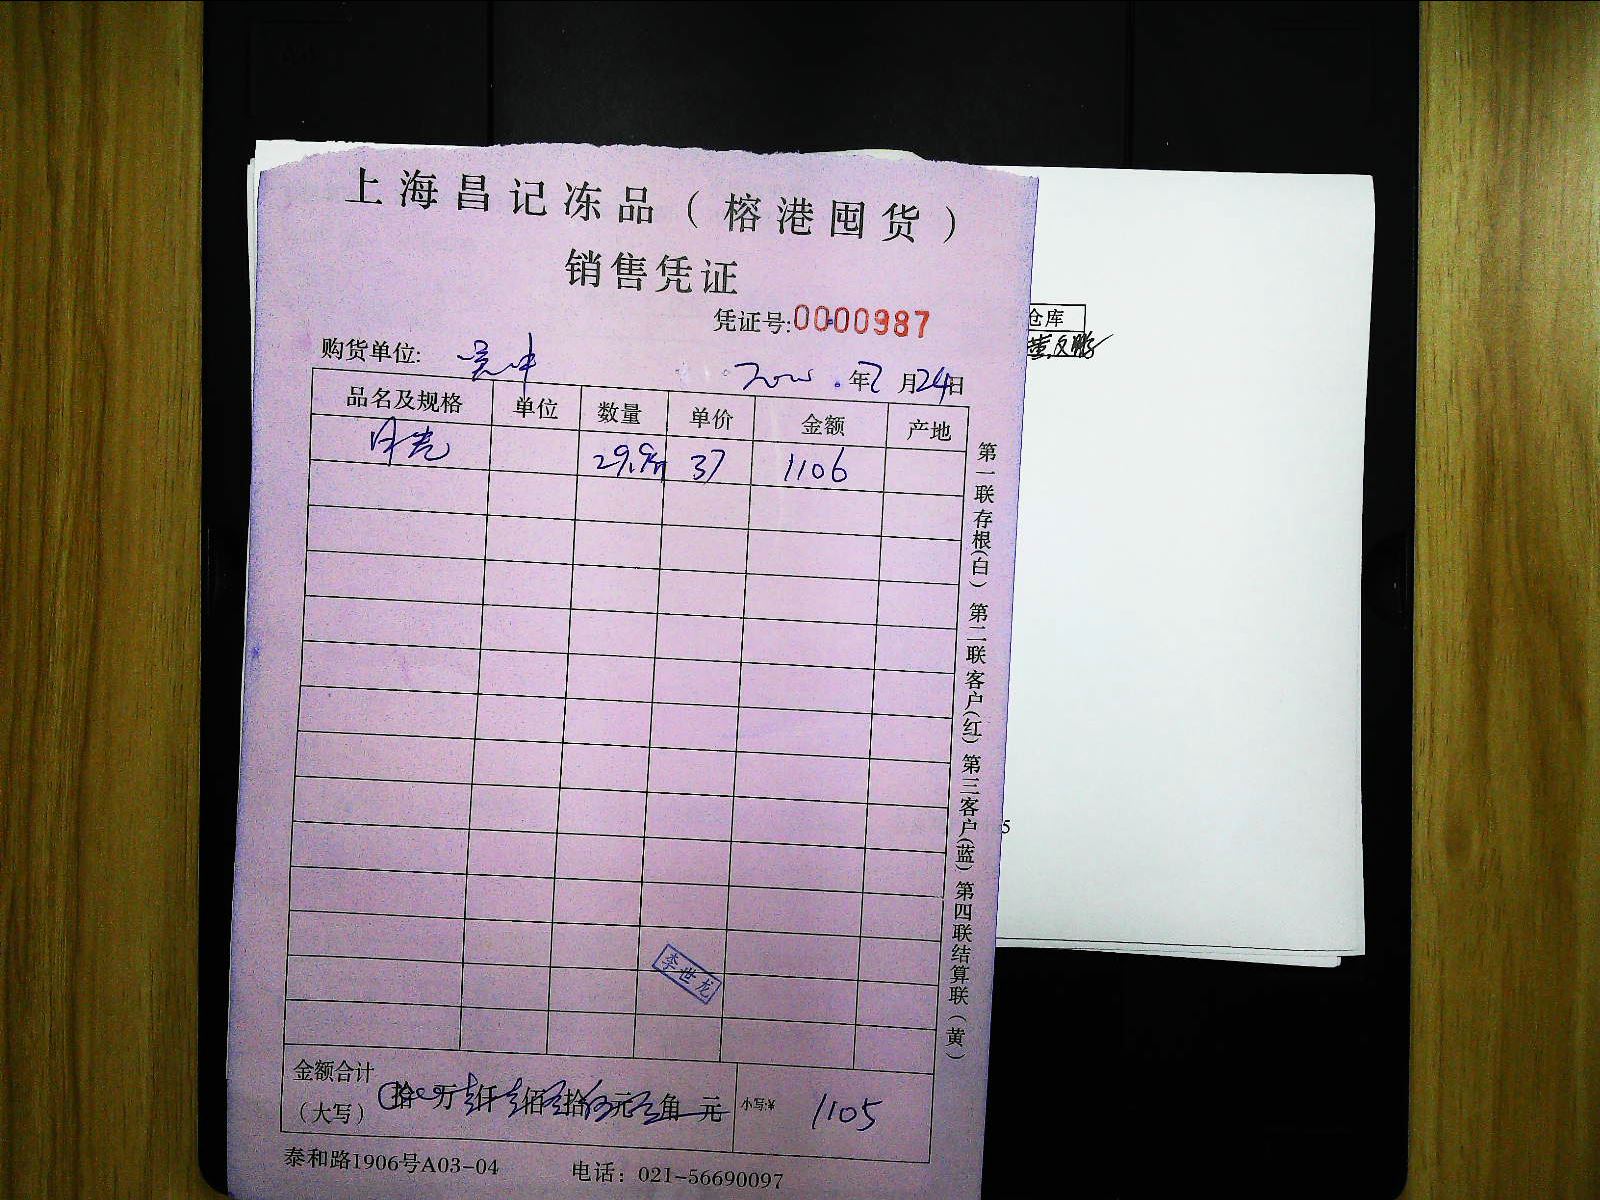 上海昌记冻品（榕港囤货）
销售凭证
凭证号:0000987
仓库
购货单位:
年2月24日
品名及规格 单位 数量 单价 金额 产地
29.9 37 1106
第一联存根(白) 第二联客户(红) 第三客户(蓝) 第四联结算联(黄)
5
李世龙
金额合计
（大写） 拾 万 仟 佰 拾 元 角 元 小写:¥ 1105
泰和路1906号A03-04 电话：021-56690097